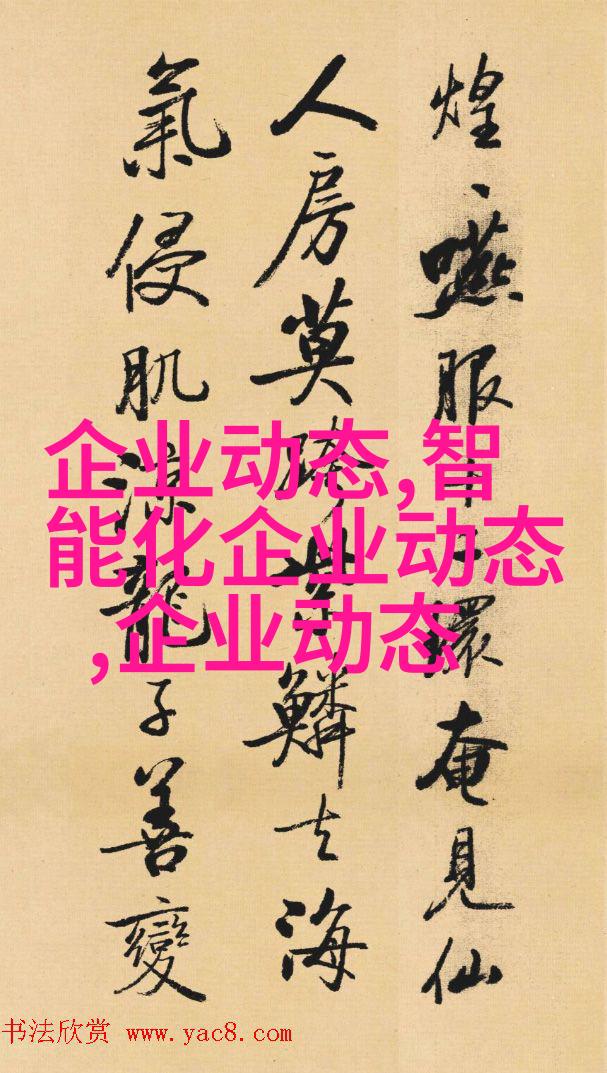 煌、嚥服環奄見仙
人房莫鱗去海
氣侵肌涼龍子善變
企业动态,智
能化企业动态
,企业动态
书法欣赏 www.yac8.com